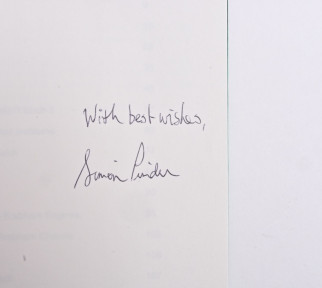 With best wishes,
Simon Pinder